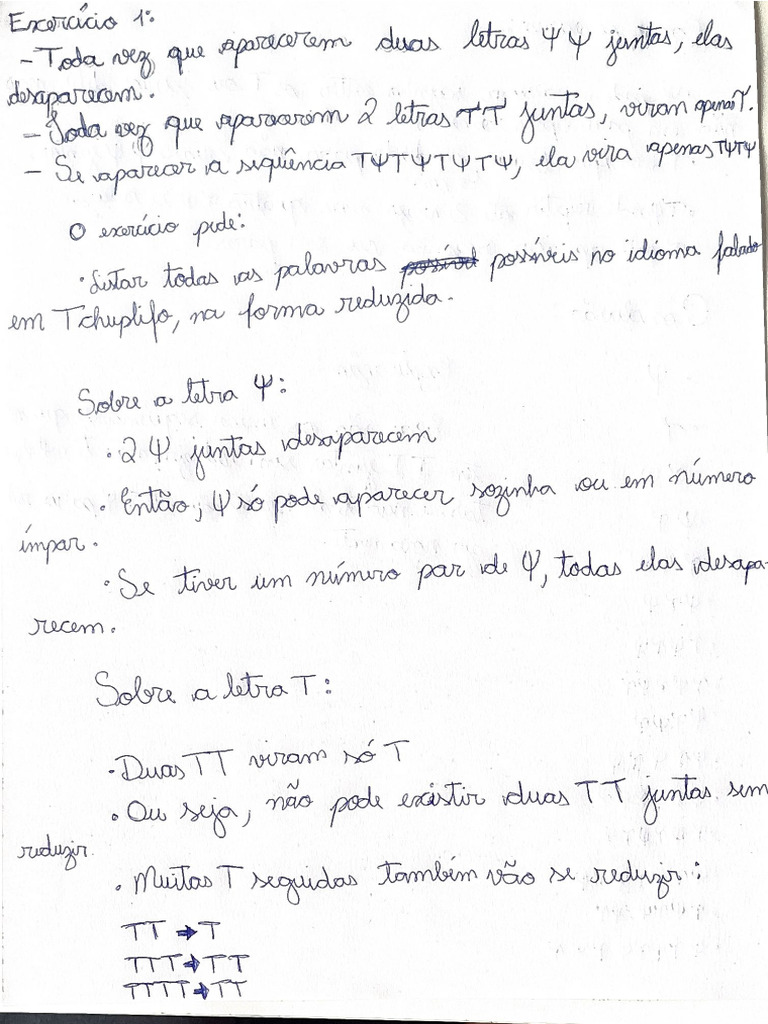 Exercício 1:
- Toda vez que aparecerem duas letras Ψ Ψ juntas, elas
desaparecem.
- Toda vez que aparecerem 2 letras TT juntas, viram apenas T.
- Se aparecer a sequência TΨTΨTΨTΨ, ela vira apenas TΨTΨ
O exercício pede:
· Listar todas as palavras possíveis no idioma falado
em Tchuplifo, na forma reduzida.
Sobre a letra Ψ:
· 2 Ψ juntas desaparecem
· Então, Ψ só pode aparecer sozinha ou em número
ímpar.
· Se tiver um número par de Ψ, todas elas desapa-
recem.
Sobre a letra T:
· Duas TT viram só T
· Ou seja, não pode existir duas TT juntas sem
reduzir.
· Muitas T seguidas também vão se reduzir:
TT → T
TTT → TT
TTTT → TT